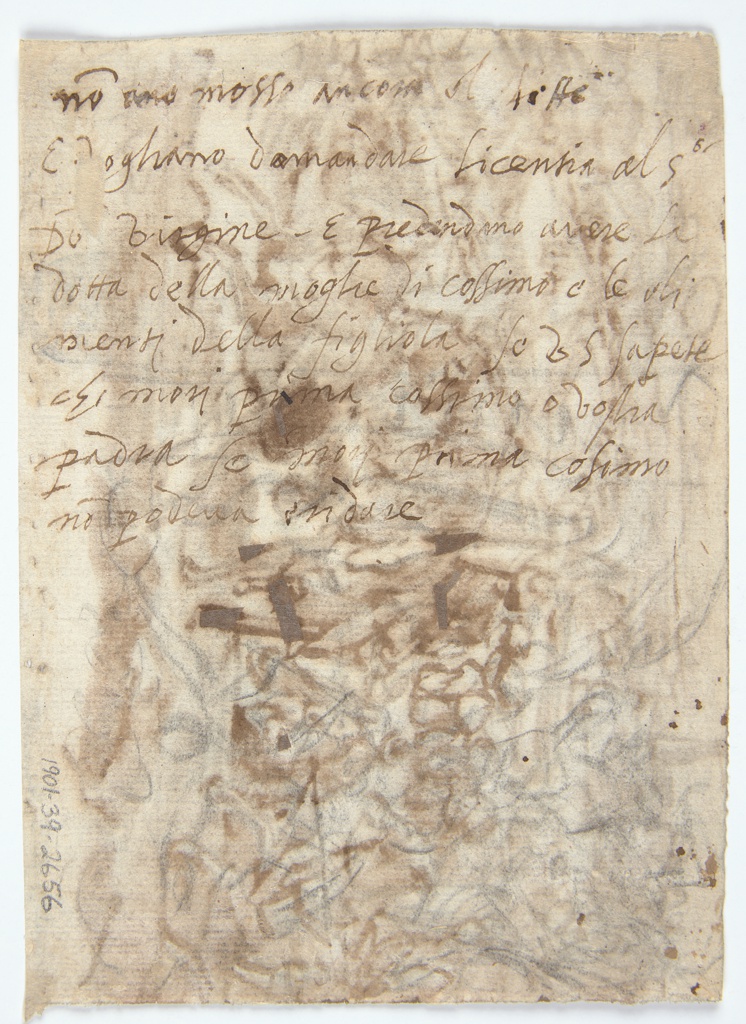 nō ano mosso ancora il
E Vogliano domandare licentia al S.or
Do Virgine - E pretendano avere la
dotta della moglie di cossimo e le ali
menti della figliola se V S sapete
chi mori prima cossimo o vostra
padra se mori prima cosimo
nō podeva eridare
1901-39-2656